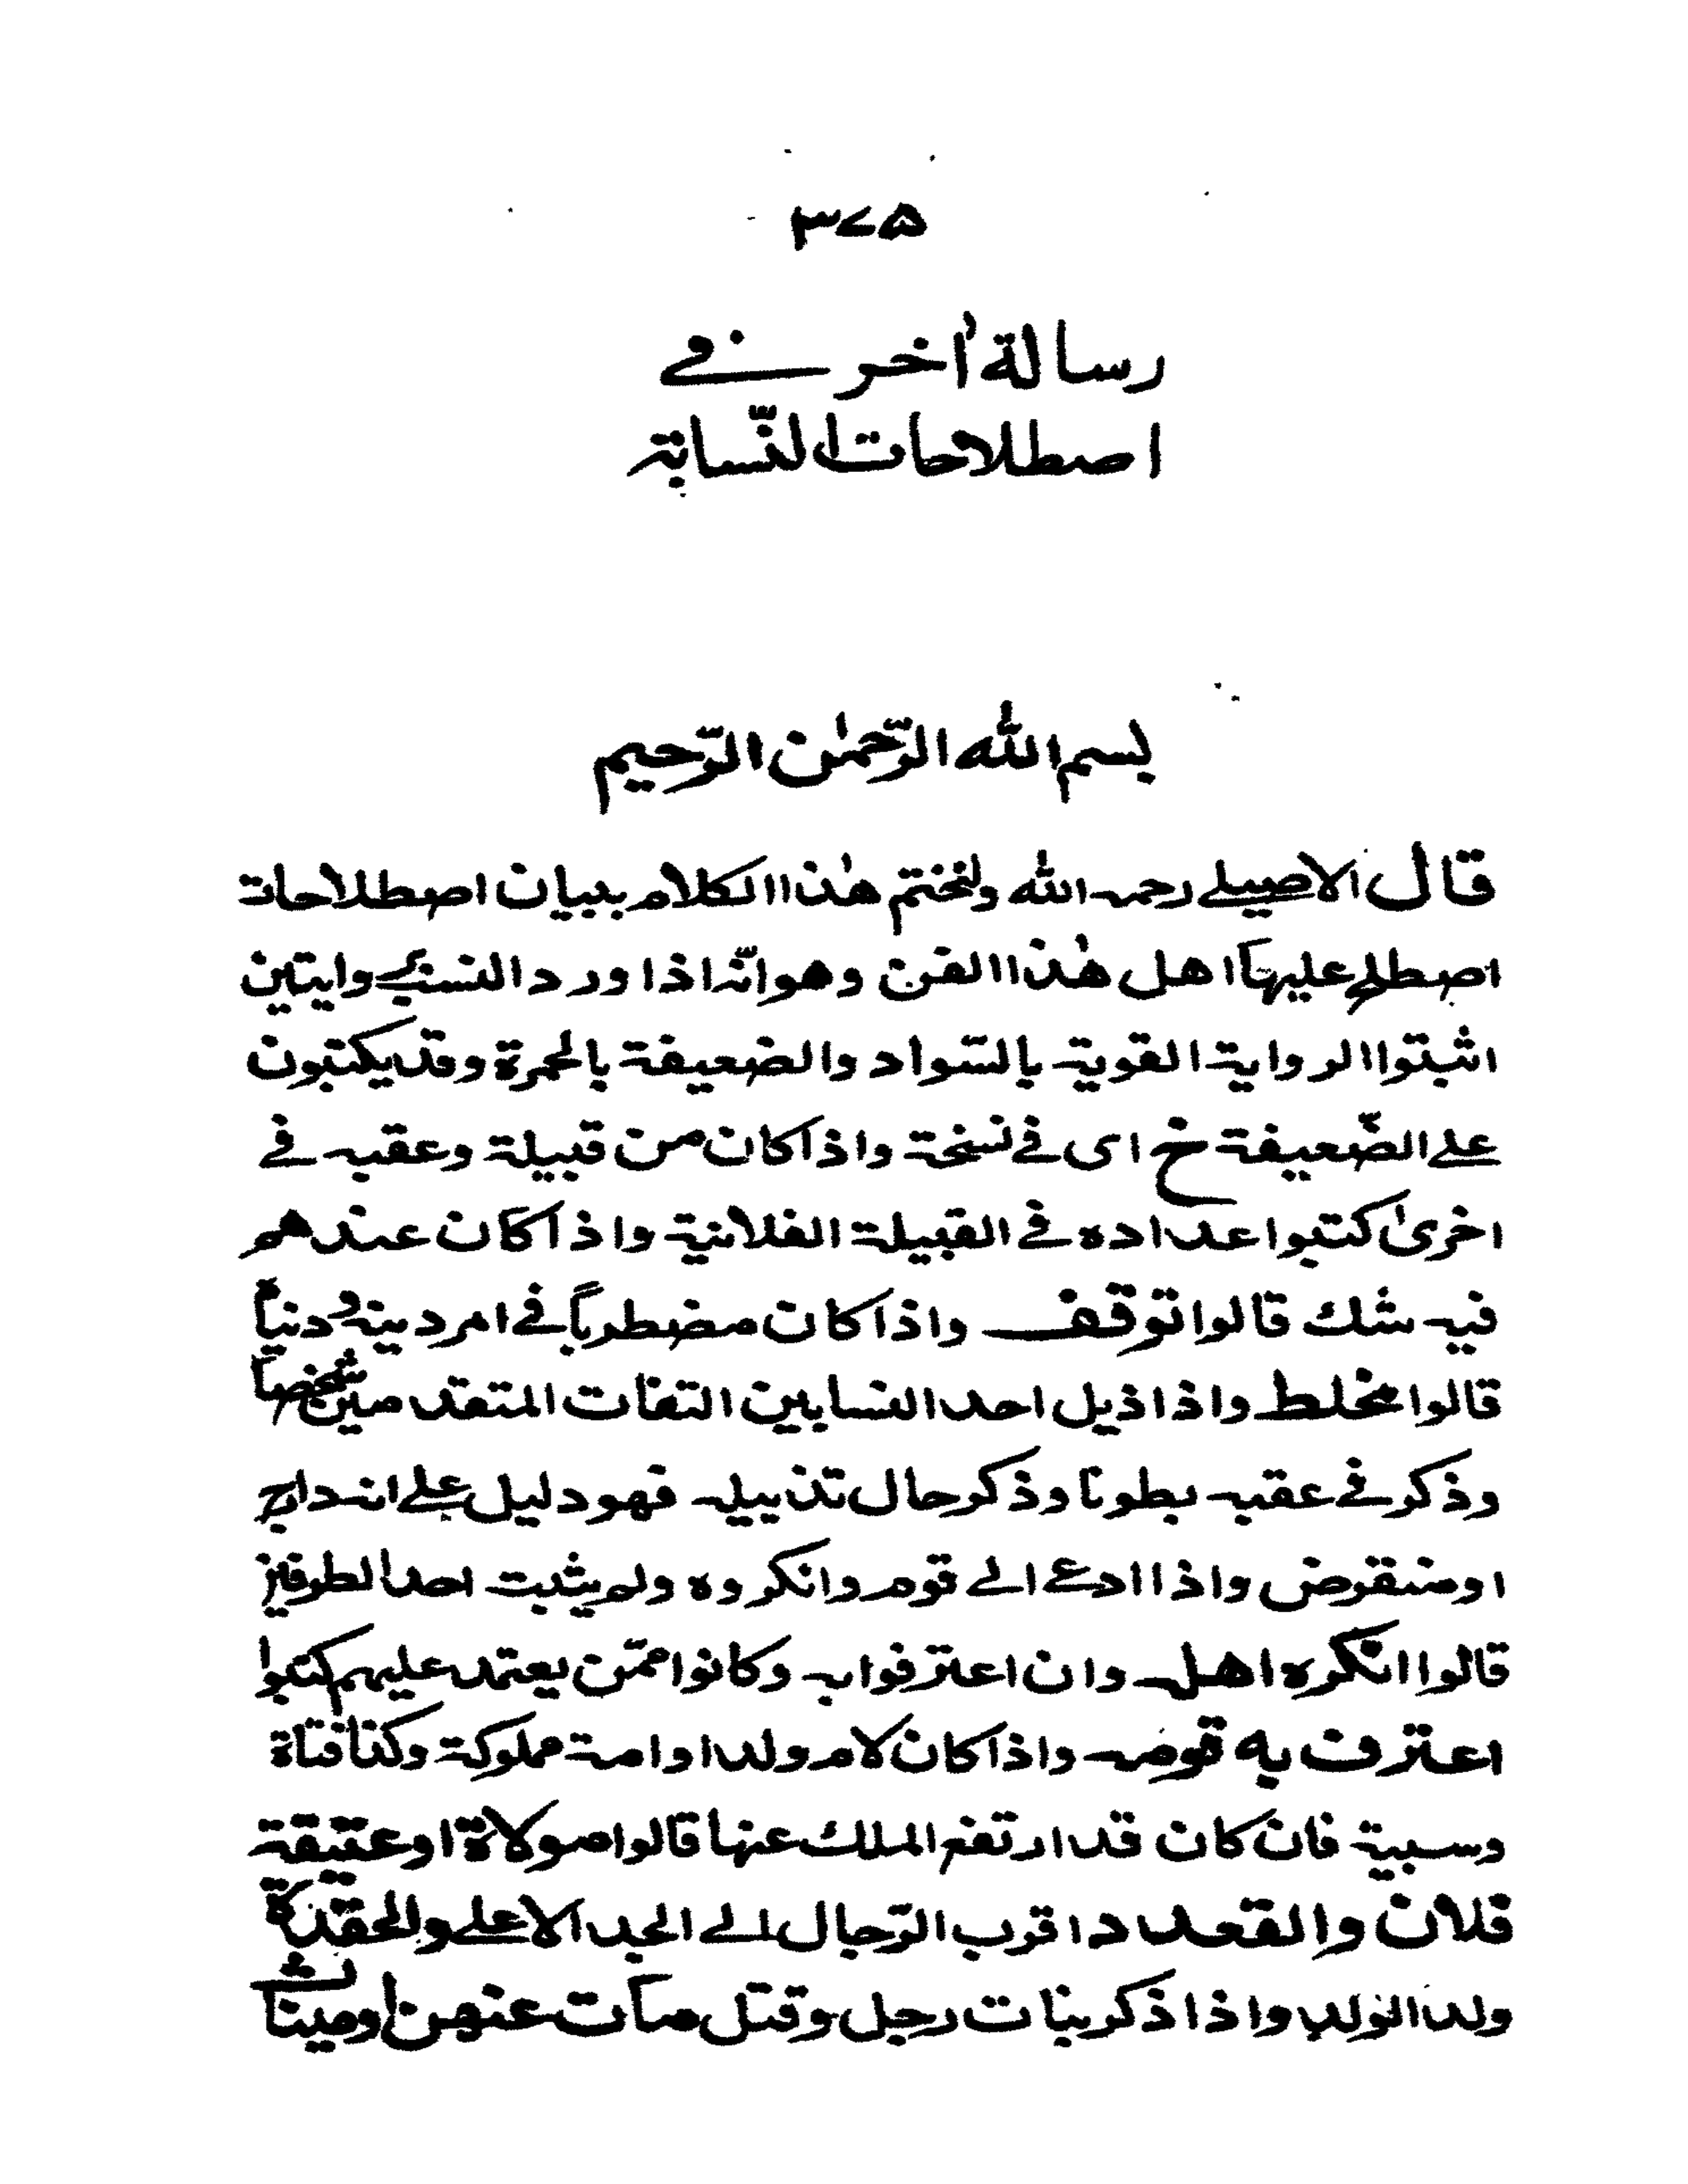 ٣٧٥
رسالة اخر في
اصطلاحات النّسابة
بسم الله الرّحمٰن الرّحيم
قال الاصيلے رحمه الله ولنختم هٰذا الكلام ببيان اصطلاحات
اصطلح عليها اهل هٰذا الفن وهو انّه اذا ورد النسب روايتين
اثبتوا الرواية القوية بالسّواد والضعيفة بالحمرة وقد يكتبون
علے الضّعيفة خ اى فے نسخة واذا كان من قبيلة وعقبه فے
اخرىٰ كتبوا عداده فے القبيلة الفلانية واذا كان عندهم
فيه شك قالوا توقف واذا كان مضطرباً فے امر دينه و دنياه
قالوا مخلط واذا ذيل احد النسابين الثقات المتقدمين شخصاً
وذكر فے عقبه بطونا وذكر حال تذييله فهو دليل علے اندراج
او منقرض واذا ادعے الے قوم وانكروه ولم يثبت احد الطرفين
قالوا انكره اهله وان اعترفوا به وكانوا ممّن يعتمد عليهم كتبوا
اعترف به قومه واذا كان لام ولد او امة مملوكة وكذا فتاة
وسبية فان كان قد ارتفع الملك عنها قالوا مولاة او عتيقة
فلان والقعدد اقرب الرّجال الے الجد الاعلے والحفدة
ولد الولد واذا ذكر بنات رجل وقتل مات عنهن او ميناث